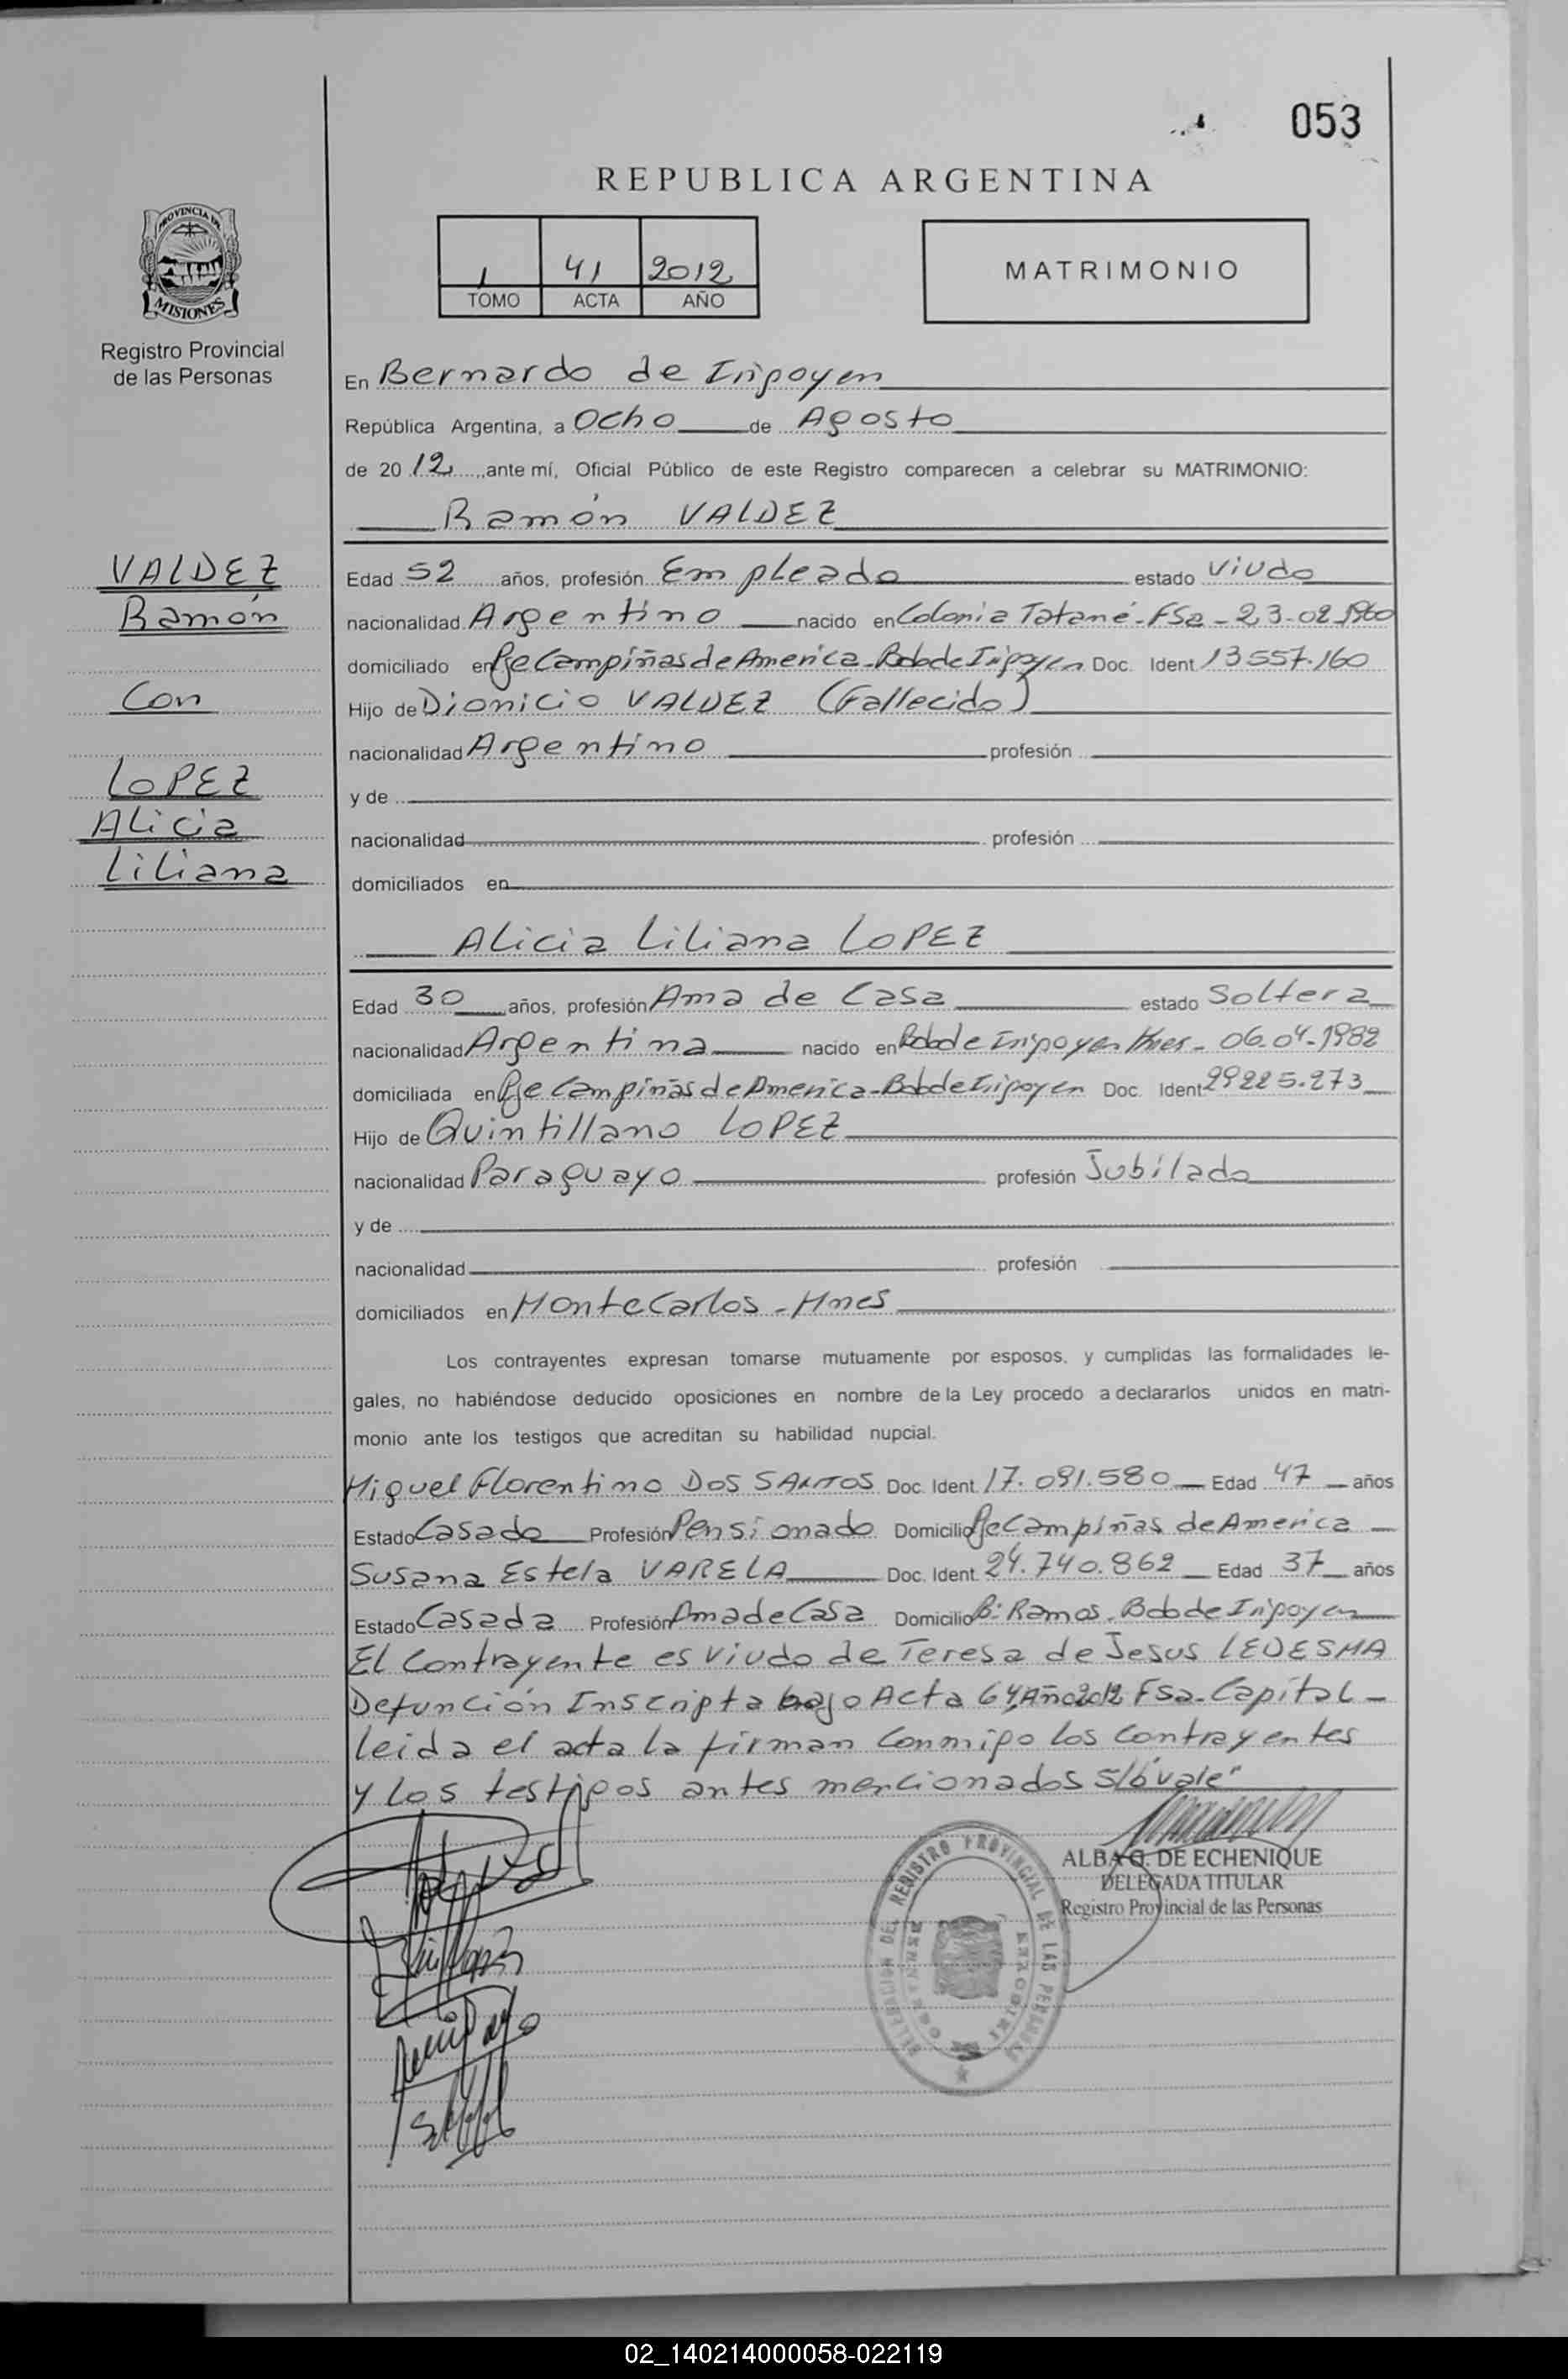 053
REPUBLICA ARGENTINA
PROVINCIA DE
MISIONES
1 41 2012
TOMO ACTA AÑO
MATRIMONIO
Registro Provincial
de las Personas
En Bernardo de Irigoyen
República Argentina, a Ocho de Agosto
de 2012, ante mí, Oficial Público de este Registro comparecen a celebrar su MATRIMONIO:
Ramón VALDEZ
VALDEZ
Ramón
Con
LOPEZ
Alicia
Liliana
Edad 52 años, profesión Empleado estado Viudo
nacionalidad Argentino nacido en Colonia Tatané-FSa-23-02-1960
domiciliado en Pje Campiñas de America-Bdo de Irigoyen Doc. Ident. 13557.160
Hijo de Dionicio VALDEZ (Fallecido)
nacionalidad Argentino profesión
y de
nacionalidad profesión
domiciliados en
Alicia Liliana LOPEZ
Edad 30 años, profesión Ama de Casa estado Soltera
nacionalidad Argentina nacido en Bdo de Irigoyen Mnes- 06-04-1982
domiciliada en Pje Campiñas de America-Bdo de Irigoyen Doc. Ident. 29225.273
Hijo de Quintillano LOPEZ
nacionalidad Paraguayo profesión Jubilado
y de
nacionalidad profesión
domiciliados en MonteCarlos-Mnes
Los contrayentes expresan tomarse mutuamente por esposos, y cumplidas las formalidades le-
gales, no habiéndose deducido oposiciones en nombre de la Ley procedo a declararlos unidos en matri-
monio ante los testigos que acreditan su habilidad nupcial.
Miguel Florentino DOS SANTOS Doc. Ident. 17.091.580 Edad 47 años
Estado Casado Profesión Pensionado Domicilio Pje Campiñas de America
Susana Estela VARELA Doc. Ident. 24.740.862 Edad 37 años
Estado Casada Profesión Ama de Casa Domicilio Bº Ramos-Bdo de Irigoyen
El Contrayente es Viudo de Teresa de Jesus LEDESMA
Defunción Inscripta bajo Acta 64, Año 2012 FSa-Capital-
leida el acta la firman Conmigo los Contrayentes
y los testigos antes mencionados S/b vale"
ALBA G. DE ECHENIQUE
DELEGADA TITULAR
Registro Provincial de las Personas
DELEGACION DEL REGISTRO PROVINCIAL DE LAS PERSONAS
02_140214000058-022119